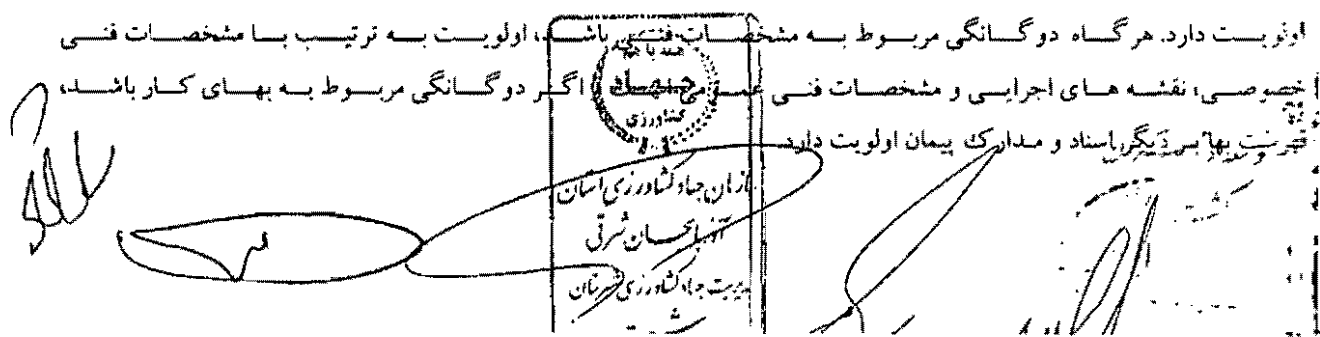 اولویت دارد. هرگاه دوگانگی مربوط به مشخصات فنی باشد، اولویت به ترتیب با مشخصات فنی
خصوصی، نقشه های اجرایی و مشخصات فنی عمومی است اگر دوگانگی مربوط به بهای کار باشد،
فهرست بها بر دیگر اسناد و مدارک پیمان اولویت دارد
جهاد
کشاورزی
سازمان جهاد کشاورزی استان
آذربایجان شرقی
مدیریت جهاد کشاورزی شهرستان